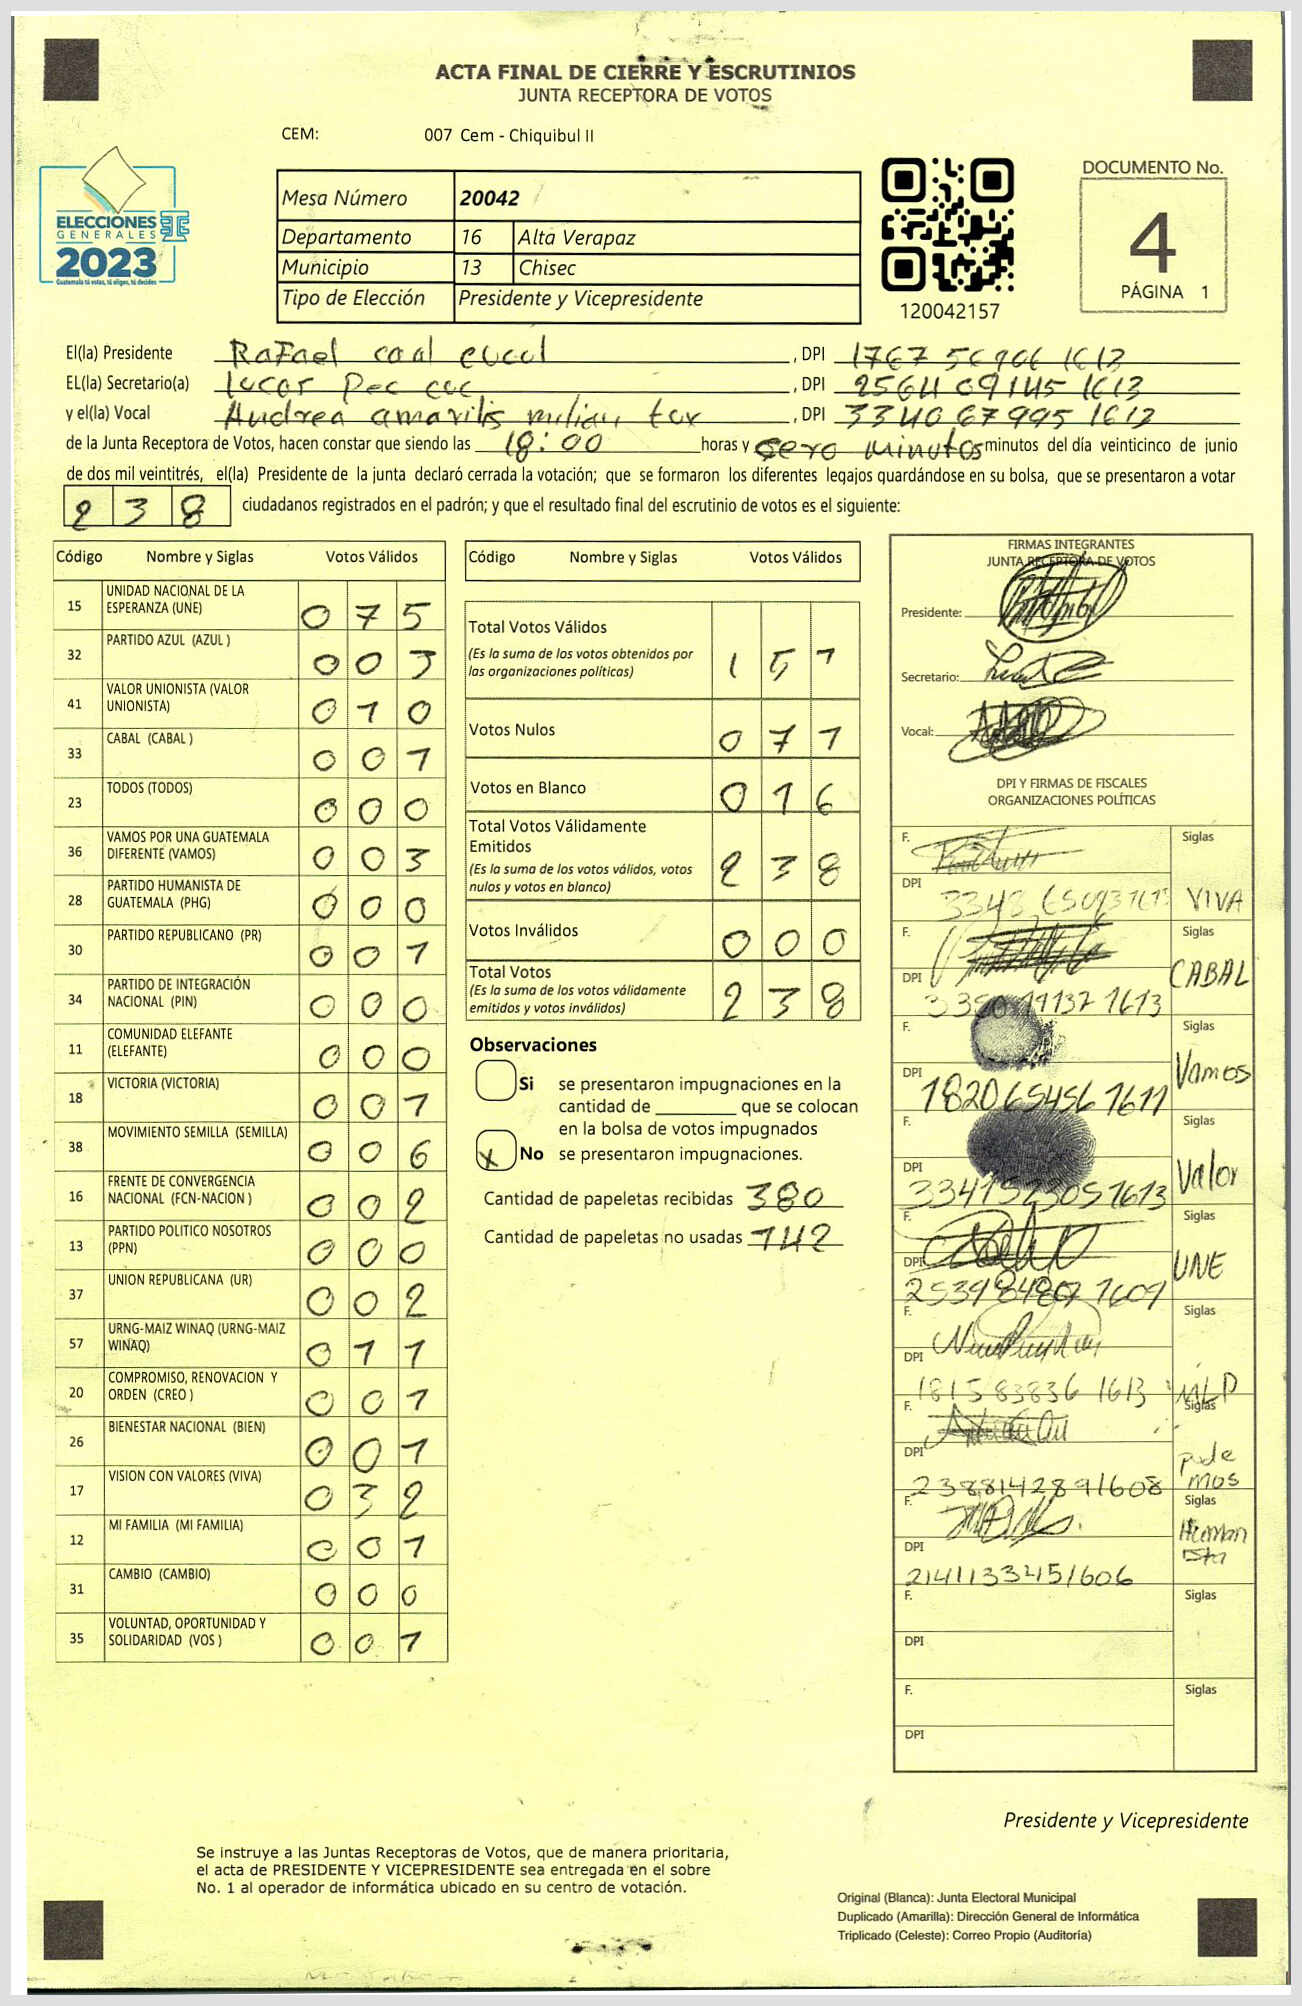 ACTA FINAL DE CIERRE Y ESCRUTINIOS
JUNTA RECEPTORA DE VOTOS
CEM: 007 Cem - Chiquibul II
ELECCIONES
GENERALES
2023
Guatemala tú votas, tú eliges, tú decides
Mesa Número 20042
Departamento 16 Alta Verapaz
Municipio 13 Chisec
Tipo de Elección Presidente y Vicepresidente
120042157
DOCUMENTO No.
4
PÁGINA 1
El(la) Presidente Rafael caal cucul , DPI 1767 56906 1613
EL(la) Secretario(a) Lucas Pec cuc , DPI 2564 09145 1613
y el(la) Vocal Andrea amarilis milian tux , DPI 3340 67995 1613
de la Junta Receptora de Votos, hacen constar que siendo las 18:00 horas y cero minutos minutos del día veinticinco de junio
de dos mil veintitrés, el(la) Presidente de la junta declaró cerrada la votación; que se formaron los diferentes legajos quardándose en su bolsa, que se presentaron a votar
238 ciudadanos registrados en el padrón; y que el resultado final del escrutinio de votos es el siguiente:
Código Nombre y Siglas Votos Válidos
15 UNIDAD NACIONAL DE LA ESPERANZA (UNE) 075
32 PARTIDO AZUL (AZUL ) 003
41 VALOR UNIONISTA (VALOR UNIONISTA) 010
33 CABAL (CABAL ) 001
23 TODOS (TODOS) 000
36 VAMOS POR UNA GUATEMALA DIFERENTE (VAMOS) 003
28 PARTIDO HUMANISTA DE GUATEMALA (PHG) 000
30 PARTIDO REPUBLICANO (PR) 001
34 PARTIDO DE INTEGRACIÓN NACIONAL (PIN) 000
11 COMUNIDAD ELEFANTE (ELEFANTE) 000
18 VICTORIA (VICTORIA) 001
38 MOVIMIENTO SEMILLA (SEMILLA) 006
16 FRENTE DE CONVERGENCIA NACIONAL (FCN-NACION ) 002
13 PARTIDO POLITICO NOSOTROS (PPN) 000
37 UNION REPUBLICANA (UR) 002
57 URNG-MAIZ WINAQ (URNG-MAIZ WINAQ) 011
20 COMPROMISO, RENOVACION Y ORDEN (CREO ) 001
26 BIENESTAR NACIONAL (BIEN) 001
17 VISION CON VALORES (VIVA) 032
12 MI FAMILIA (MI FAMILIA) 001
31 CAMBIO (CAMBIO) 000
35 VOLUNTAD, OPORTUNIDAD Y SOLIDARIDAD (VOS ) 001
Código Nombre y Siglas Votos Válidos
Total Votos Válidos 151
(Es la suma de los votos obtenidos por
las organizaciones políticas)
Votos Nulos 071
Votos en Blanco 016
Total Votos Válidamente
Emitidos 238
(Es la suma de los votos válidos, votos
nulos y votos en blanco)
Votos Inválidos 000
Total Votos 238
(Es la suma de los votos válidamente
emitidos y votos inválidos)
Observaciones
Si se presentaron impugnaciones en la
cantidad de ________ que se colocan
en la bolsa de votos impugnados
x No se presentaron impugnaciones.
Cantidad de papeletas recibidas 380
Cantidad de papeletas no usadas 142
FIRMAS INTEGRANTES
JUNTA RECEPTORA DE VOTOS
Presidente:
Secretario:
Vocal:
DPI Y FIRMAS DE FISCALES
ORGANIZACIONES POLÍTICAS
F. Siglas
DPI VIVA
F. Siglas
DPI CABAL
F. Siglas
DPI 1820654561611 Vamos
F. Siglas
DPI Valor
F. Siglas
DPI UNE
F. Siglas
DPI 1815 83836 1613 MLP
F. Siglas
DPI 2388142891608 pode mos
F. Siglas
DPI 2141133451606 Humanista
F. Siglas
DPI
F. Siglas
DPI
Presidente y Vicepresidente
Se instruye a las Juntas Receptoras de Votos, que de manera prioritaria,
el acta de PRESIDENTE Y VICEPRESIDENTE sea entregada en el sobre
No. 1 al operador de informática ubicado en su centro de votación.
Original (Blanca): Junta Electoral Municipal
Duplicado (Amarilla): Dirección General de Informática
Triplicado (Celeste): Correo Propio (Auditoría)